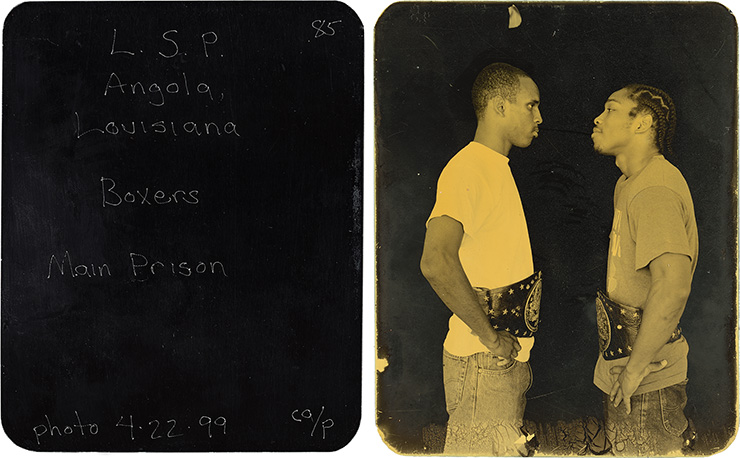 85
L. S. P.
Angola,
Louisiana
Boxers
Main Prison
photo 4.22.99
co/p